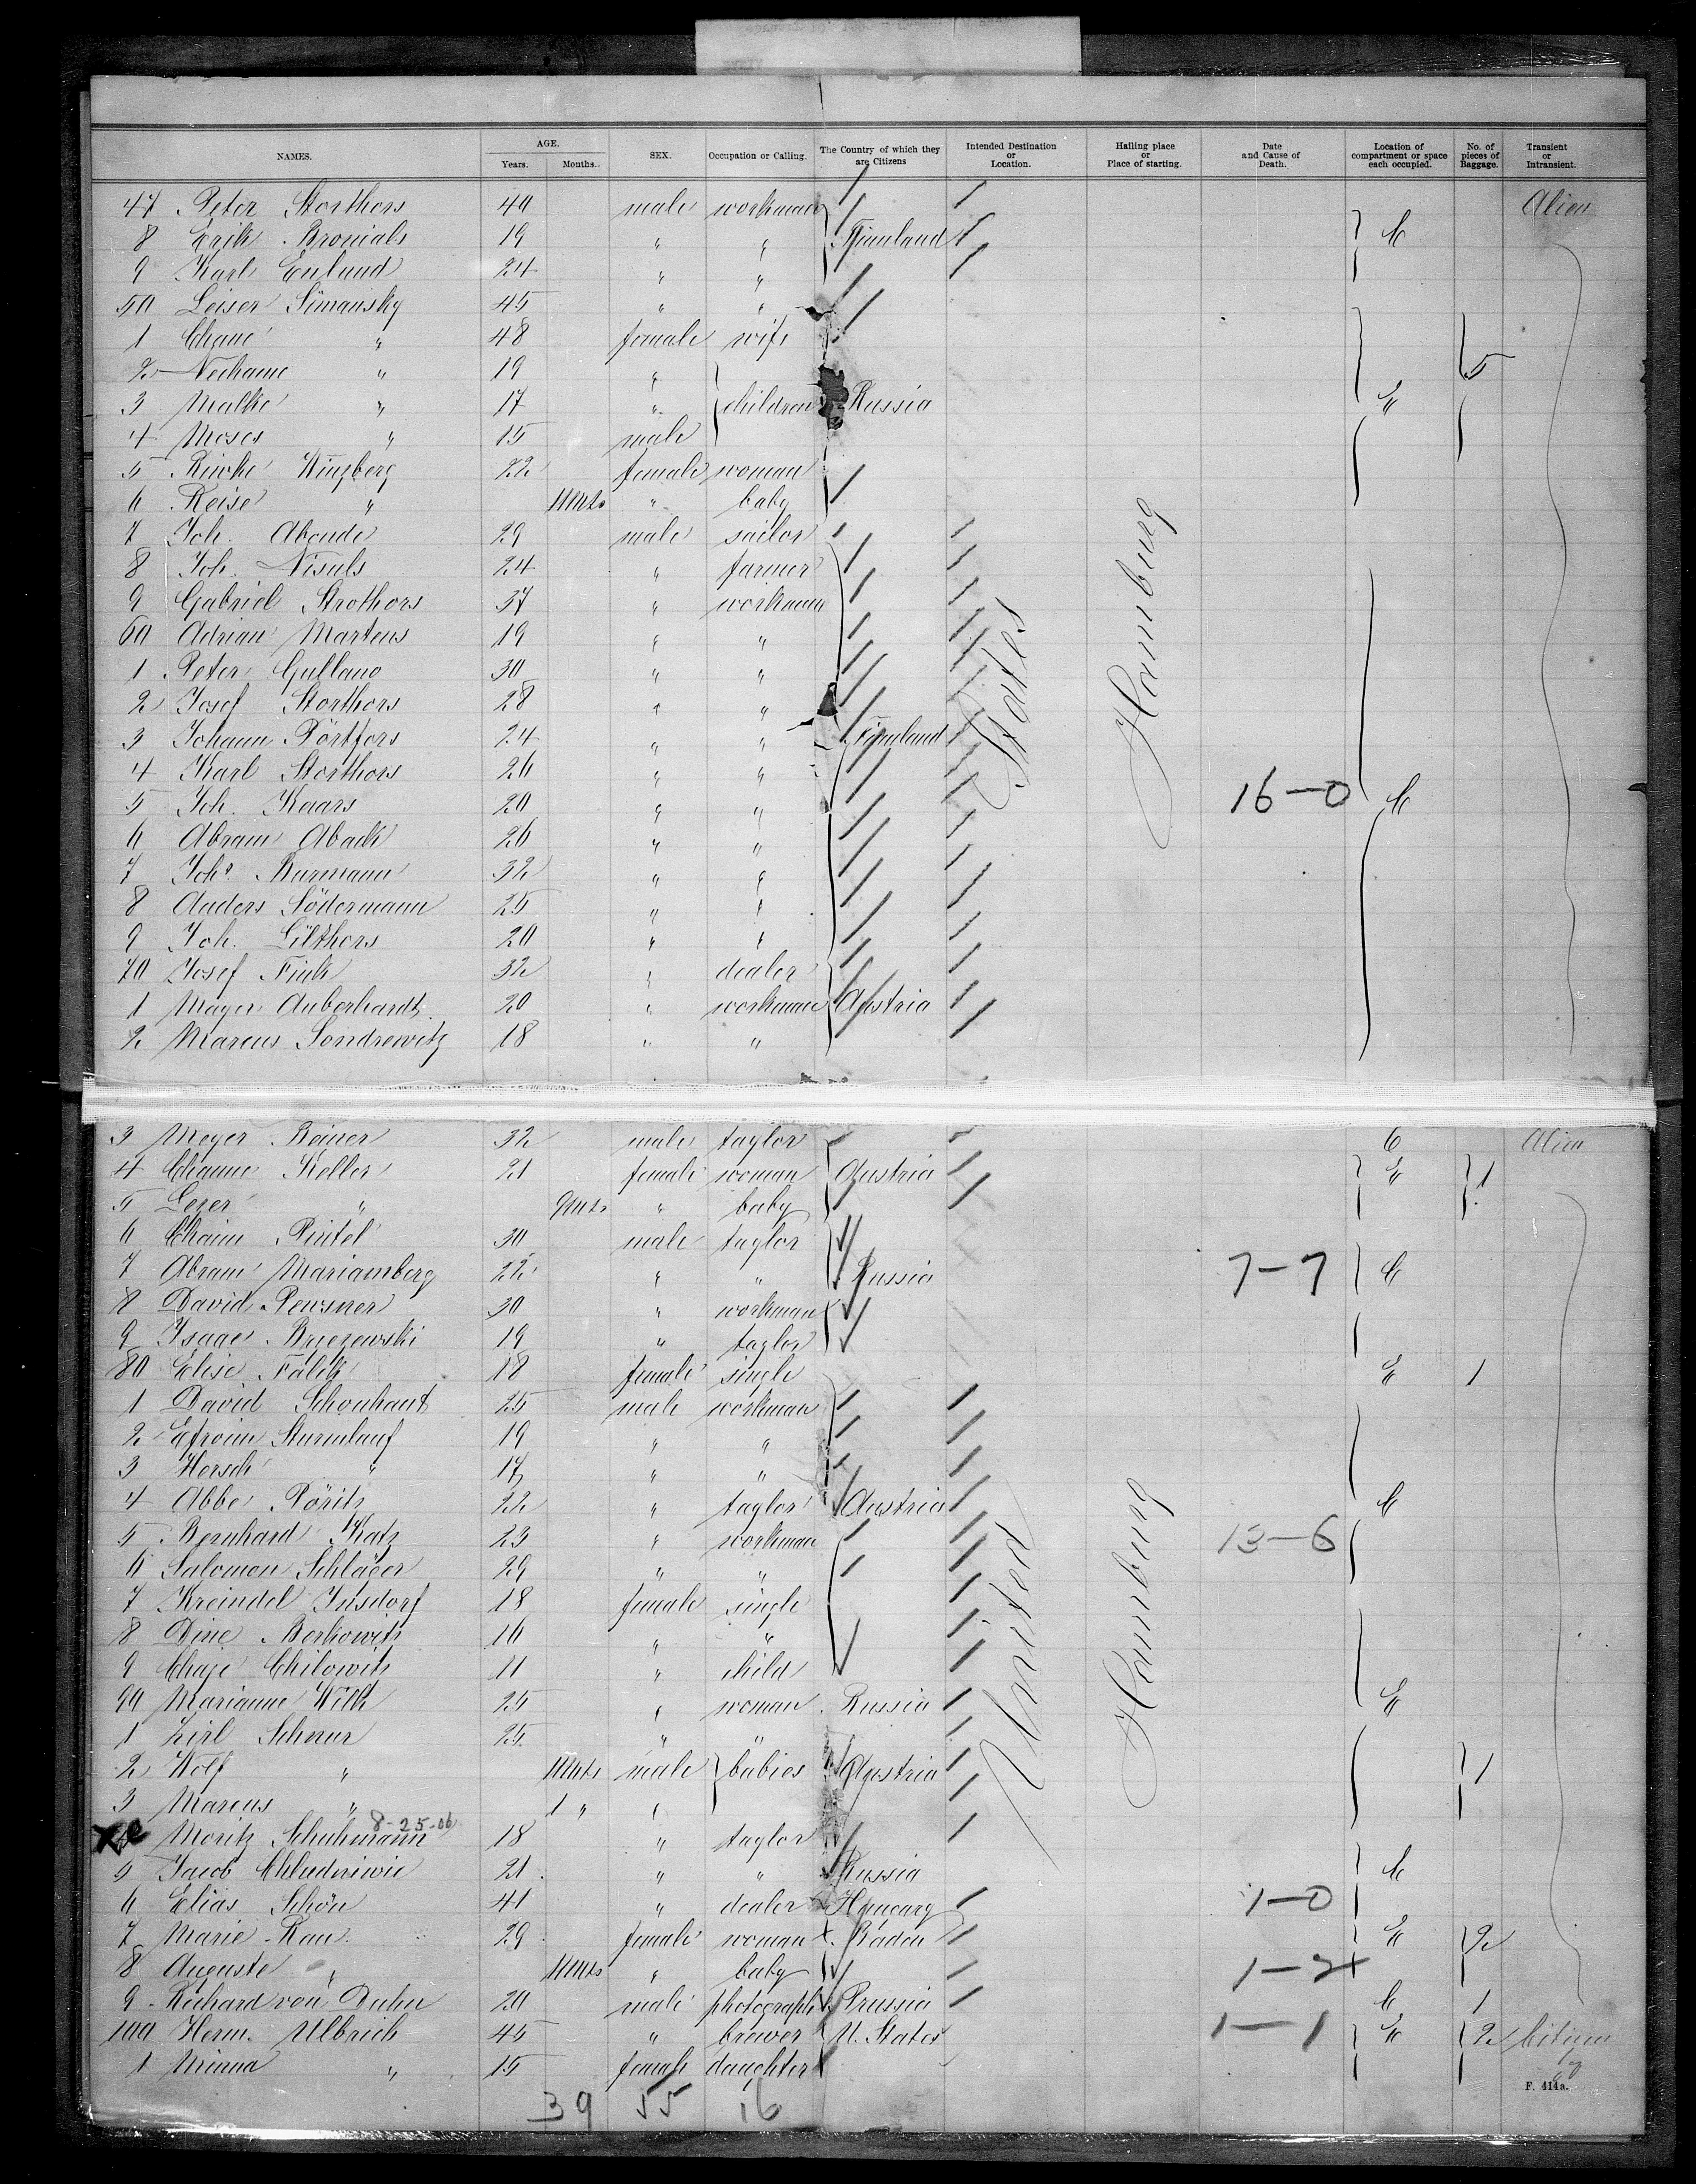 NAMES. AGE. Years. Months. SEX. Occupation or Calling. The Country of which they are Citizens Intended Destination or Location. Hailing place or Place of starting. Date and Cause of Death. Location of compartment or space each occupied. No. of pieces of Baggage. Transient or Intransient.
47 Peter Storthors 40 male workman Alien
8 Erik Bronials 19 " " Finnland C
9 Karl Enlund 24 " "
50 Leiser Simansky 45 " "
1 Chane " 48 female wife
2 Nechame " 19 " 5
3 Malke " 17 " children Russia E
4 Moses " 15 male
5 Riwke Winzberg 22 female woman
6 Reise " 11 Mts " baby
7 Joh. Abonde 29 male sailor
8 Joh. Nisuls 24 " farmer
9 Gabriel Strothors 37 " workman
60 Adrian Martens 19 " "
1 Peter Gullano 30 " "
2 Josef Storthors 28 " "
3 Johann Pörtfors 24 " " Finnland
4 Karl Storthors 26 " "
5 Joh. Kaars 20 " " 16-0 C
6 Abram Aback 26 " "
7 Johs. Burmann 32 " "
8 Anders Södermann 25 " "
9 Joh. Lilthors 20 " "
70 Josef Fink 32 " dealer
1 Mayer Auberhardt 20 " workman Austria
2 Marcus Sondrewitz 18 " "
States
Hamburg
3 Meyer Reiner 32 male taylor C Alien
4 Channe Keller 21 female woman Austria E 1
5 Leser " 9 Mts " baby
6 Chaim Pintel 30 male taylor
7 Abram Mariamberg 22 " " Russia 7-7 C
8 David Pewsner 30 " workman
9 Isaac Brzezewski 19 " taylor
80 Elise Falck 18 female single E 1
1 David Schonhaut 25 male workman
2 Efroim Sturmlauf 19 " "
3 Hersch " 17 " "
4 Abbe Pöritz 22 " taylor Austria C
5 Bernhard Katz 23 " workman 13-6
6 Salomon Schläger 29 " "
7 Kreindel Insdorf 18 female single
8 Dine Berkowitz 16 " "
9 Chaje Chilowitz 11 " child
90 Marianne Wilk 25 " woman Russia E
1 Zirl Schnur 25 " "
2 Wolf " 11 Mts male babies Austria 1
3 Marcus " 1 " "
8-25-06
4 Moritz Schuhmann 18 " taylor
5 Jacob Chludziwic 21 " " Russia C
6 Elias Schön 41 " dealer Hungary 1-0
7 Marie Rau 29 female woman Baden E 2
8 Auguste " 11 Mts " baby 1-2
9 Richard von Duhn 20 male photograph Prussia C 1
100 Herm. Ulbrich 45 " brewer U. States 1-1 E 2 Citizen
1 Minna " 15 female daughter
United
Hamburg
39 55 16
F. 414a.